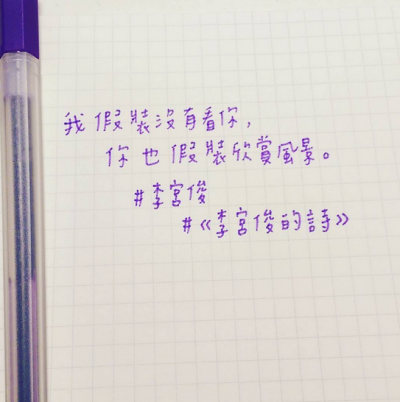 我假裝沒有看你,
你也假裝欣賞風景。
#李宮俊
#《李宮俊的詩》